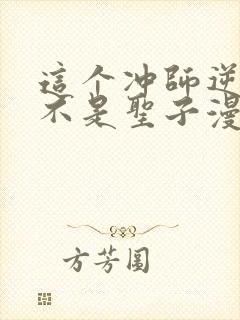 這个冲師逆
不是聖子漫
方芳圓